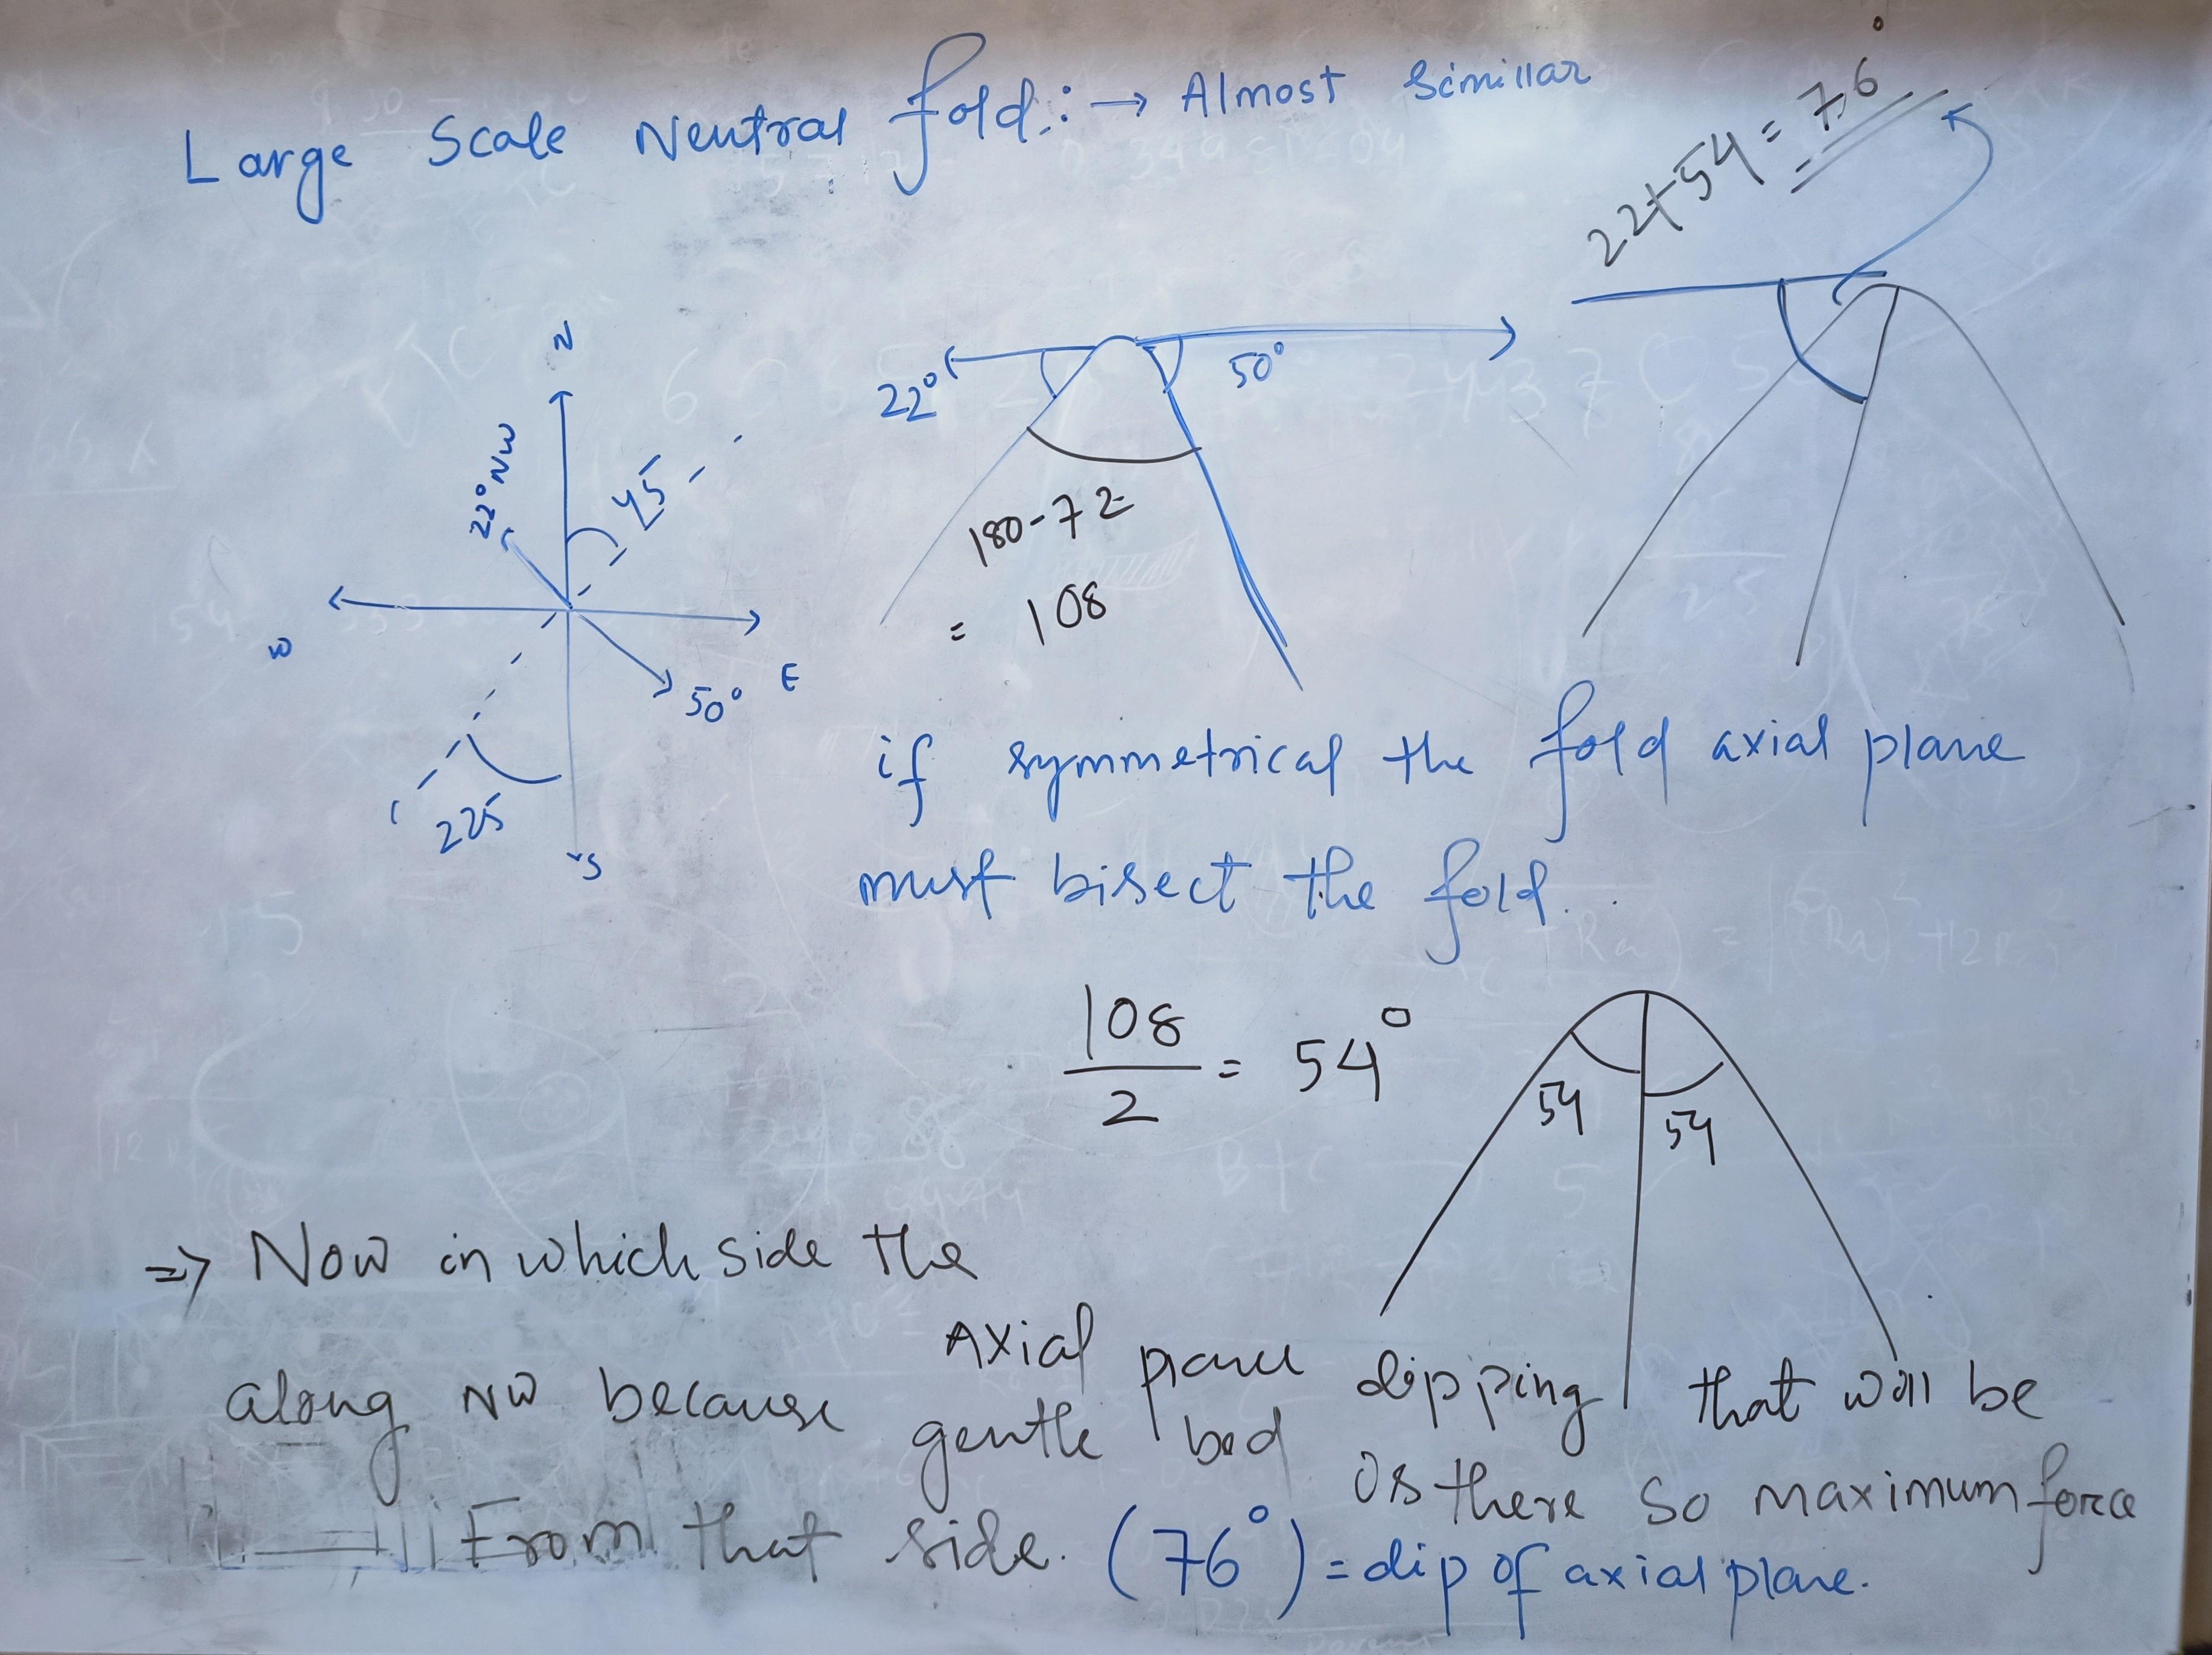 Large Scale Neutral fold :→ Almost Simillar
22+54 = 76°
N
22° NW
45
W
E
50°
225
S
22°
50°
180-72
= 108
if symmetrical the fold axial plane
must bisect the fold.
108
2
= 54°
54
54
⇒ Now in which side the
Axial plane dipping that will be
along NW because gentle bed is there so maximum force
From that side. (76°) = dip of axial plane.